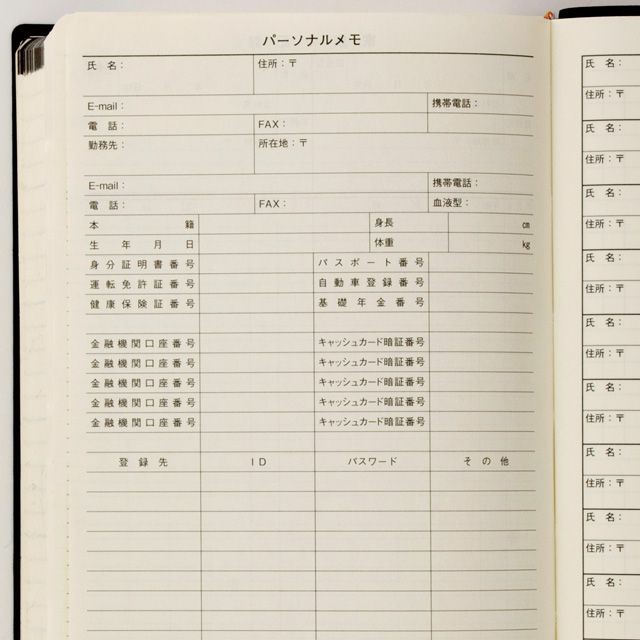 パーソナルメモ
氏 名： 住所：〒
E-mail： 携帯電話：
電 話： FAX：
勤務先： 所在地：〒
E-mail： 携帯電話：
電 話： FAX： 血液型：
本 籍 身長 ㎝
生 年 月 日 体重 ㎏
身分証明書番号 パスポート番号
運転免許証番号 自動車登録番号
健康保険証番号 基礎年金番号
金融機関口座番号 キャッシュカード暗証番号
金融機関口座番号 キャッシュカード暗証番号
金融機関口座番号 キャッシュカード暗証番号
金融機関口座番号 キャッシュカード暗証番号
金融機関口座番号 キャッシュカード暗証番号
登 録 先 ID パスワード そ の 他
氏 名：
住所：〒
氏 名：
住所：〒
氏 名：
住所：〒
氏 名：
住所：〒
氏 名：
住所：〒
氏 名：
住所：〒
氏 名：
住所：〒
氏 名：
住所：〒
氏 名：
住所：〒